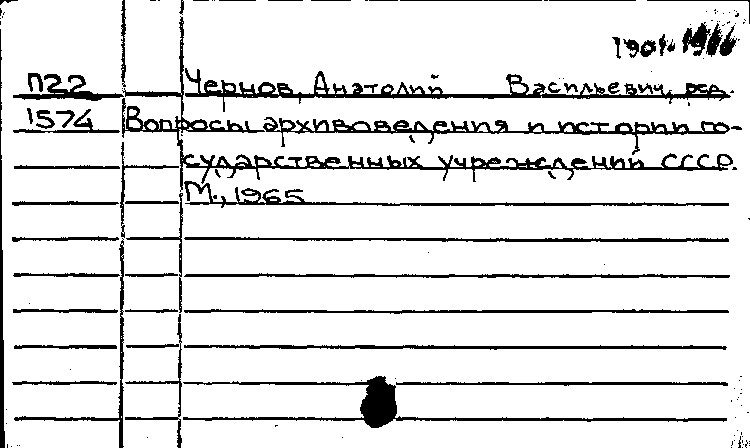 1901-
П22 Чернов, Анатолий Васильевич, ред.
1574 Вопросы архивоведения и истории го-
сударственных учреждений СССР.
М., 1965